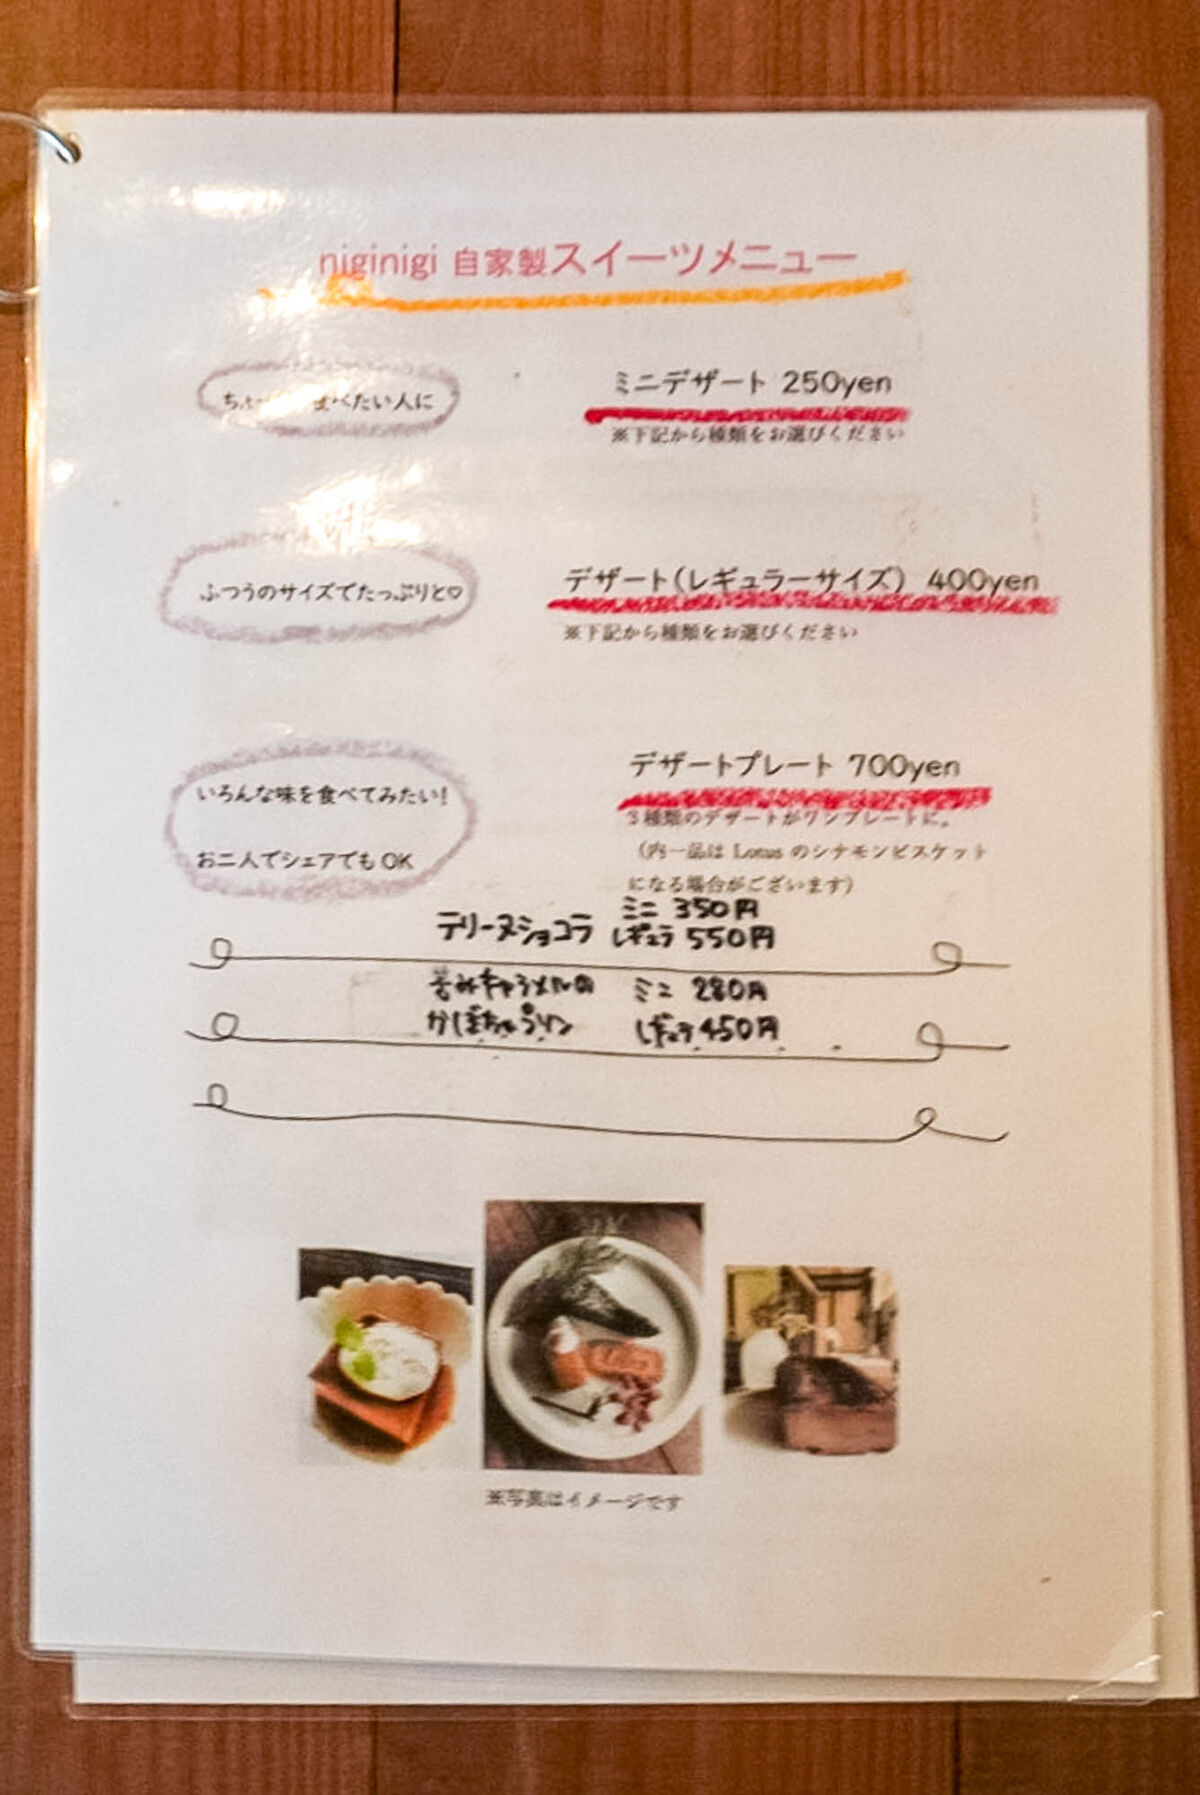 niginigi 自家製スイーツメニュー
ちょ 食べたい人に
ミニデザート 250yen
※下記から種類をお選びください
ふつうのサイズでたっぷりと♡
デザート(レギュラーサイズ) 400yen
※下記から種類をお選びください
いろんな味を食べてみたい!
お二人でシェアでもOK
デザートプレート 700yen
3種類のデザートがワンプレートに。
(内一品は Lotus のシナモンビスケット
になる場合がございます)
テリーヌショコラ ミニ 350円
レギュラ 550円
苦みキャラメルの ミニ 280円
かぼちゃプリン レギュラ 450円
※写真はイメージです